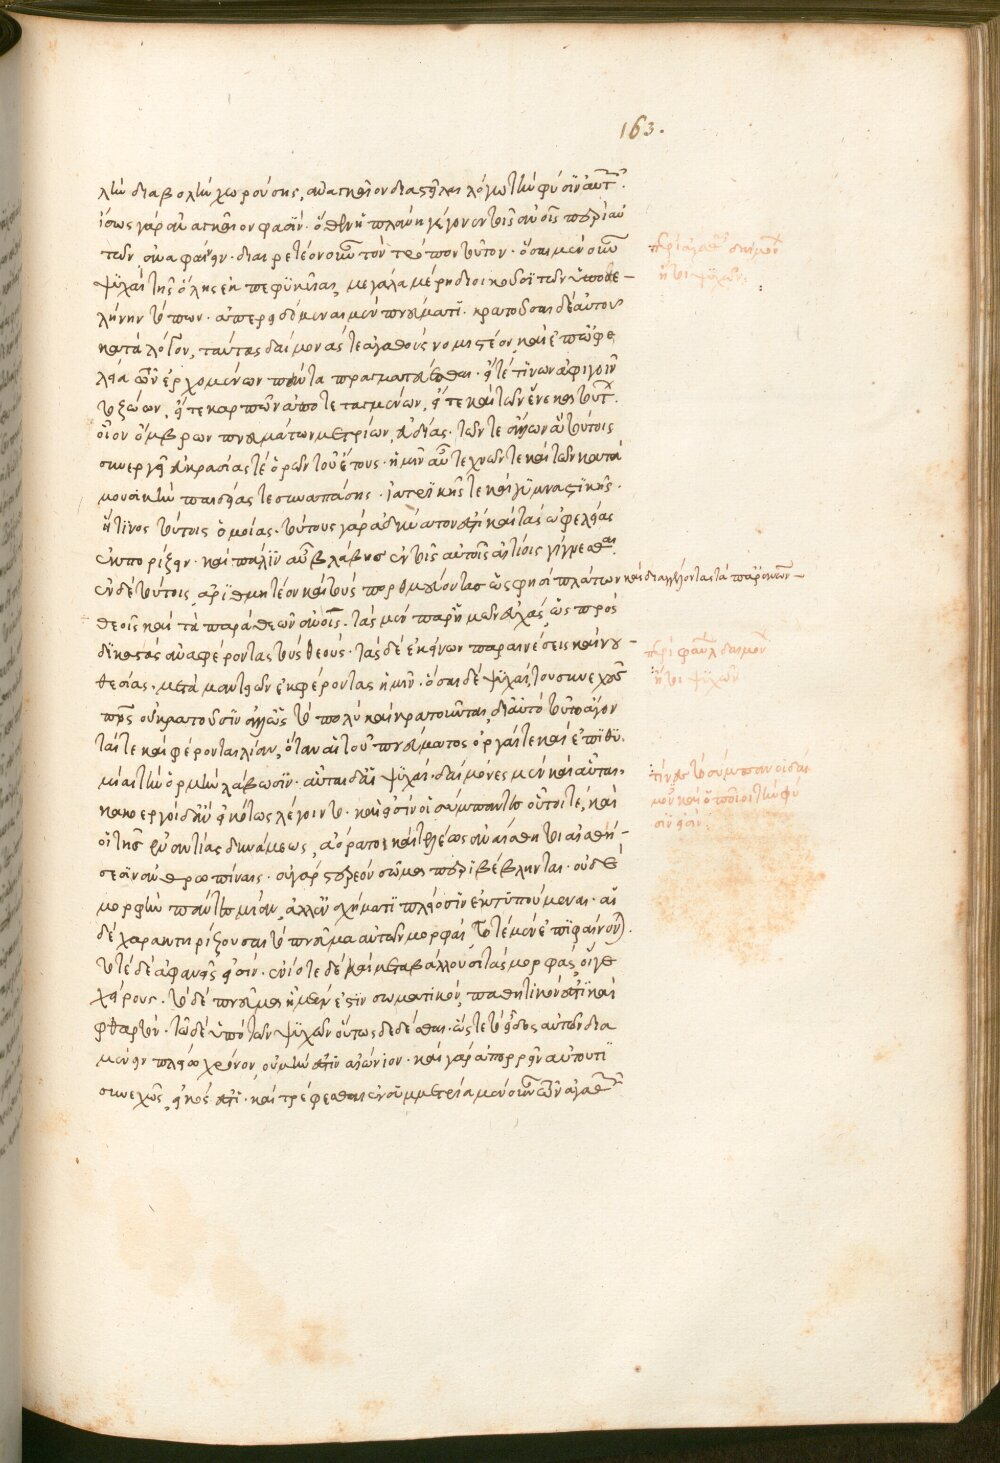 163.
λὴν διαβολὴν χωρούσης, ἀναγκαῖον διαστεῖλαι λόγω τὴν φύσιν αὐτῶν.
ἴσως γὰρ ἀναγκαῖον φασίν· ὅθεν ἡ πλάνη γέγονεν τοῖς ἀνοις περὶ αὐ
τῶν ἀναφαίνειν· διαιρετέον οὖν τὸν τρόπον τοῦτον· ὅσαι μὲν οὖν
ψυχαὶ τῆς ὅλης ἐκπεφυκυῖαι, μεγάλα μέρη διοικοῦσι τῶν ὑπὸ σε-
λήνην τόπων· ἀπερειδόμεναι μὲν πνεύματι· κρατοῦσαι δὲ αὐτοῦ
κατὰ λόγον, ταύτας δαίμονάς τε ἀγαθοὺς νομιστέον, καὶ ἐπ' ὠφε
λεία τῶν ἐρχομένων πάντα πραγματεύεσθαι· εἴτε τινῶν ἀφηγοῖν
το ζώων, εἴτε καρπῶν ἀποτεταγμένων, εἴτε καὶ τῶν ἕνεκα τούτων.
οἷον ὄμβρων πνευμάτων μετρίων, εὐδίας· τῶν τε ἄλλων ἃ τούτοις
συνεργεῖ εὐκρασίας τὲ ὁρῶν τοῦ ἔτους· ἡμῖν αὖ τεχνῶν τε καὶ τῶν κατὰ
μουσικὴν παιδείας τε συναπάσης· ἰατρικῆς τε καὶ γυμναστικῆς·
ἤ τινος τούτοις ὁμοίας· τούτους γὰρ ἀδύνατον ἐστὶ καὶ τὰς ὠφελείας
ἐκπορίζειν· καὶ πάλιν αὖ βλάβης ἐν τοῖς αὐτοῖς αἰτίοις γίγνεσθαι.
ἐν δὲ τούτοις, ἀριθμητέον καὶ τοὺς πορθμεύοντας ὥς φησι πλάτων καὶ διαγγέλοντας τὰ παρ' ἀνων-
θεοῖς καὶ τὰ παρὰ θεῶν ἀνοις· τὰς μὲν παρ' ἡμῶν εὐχὰς, ὡς πρὸς
δικαστὰς ἀναφέροντας τοὺς θεούς· τὰς δὲ ἐκείνων παραινέσεις καὶ νου-
θεσίας· μετὰ μαντειῶν ἐκφέροντας ἡμῖν· ὅσαι δὲ ψυχαὶ, τοῦ συνεχοῦς
πνς οὐ κρατοῦσιν ἀλλ' ὡς τὸ πολὺ καὶ κρατοῦνται, δι' αὐτὸ τοῦτο ἄγον
ταί τε καὶ φέρονται λίαν, ὅταν αἱ τοῦ πνεύματος ὀργαί τε καὶ ἐπιθυ-
μίαι τὴν ὁρμὴν λάβωσιν· αὗται δ' αἱ ψυχαὶ· δαίμονες μὲν καὶ αὗται,
κακοεργοὶ δ' ἂν εἰκότως λέγοιντο· καὶ εἰσὶν οἱ σύμπαντες οὗτοί τε, καὶ
οἱ τῆς ἐναντίας δυνάμεως, ἀόρατοι, καὶ τελέως ἀναίσθητοι αἰσθή-
σεσιν ἀνθρωπίναις· οὐ γὰρ στερεὸν σῶμα περιβέβληνται· οὐδὲ
μορφὴν πάντες μίαν, ἀλλ' ἐν σχήμασι πλείοσιν ἐκτυπούμεναι· αἱ
δὲ χαρακτηρίζουσαι τὸ πνεῦμα αὐτῶν μορφαὶ, τοτὲ μὲν ἐπιφαίνον(ται).
τοτὲ δὲ ἀφανεῖς εἰσίν· ἐνίοτε δὲ καὶ μεταβάλλουσι τὰς μορφὰς, οἵ γε
χείρους· τὸ δὲ πνεῦμα ᾗ μέν ἐστιν σωματικόν, παθητικόν ἐστι καὶ
φθαρτόν· τῶ δὲ ὑπὸ τῶν ψυχῶν οὕτως δεδέσθαι· ὥστε τὸ εἶδος αὐτῶν δια
μένειν πλείω χρόνον, οὐ μήν ἐστιν αἰώνιον· καὶ γὰρ ἀπορρεῖν αὐτοῦ τὶ
συνεχῶς, εἰκός ἐστι· καὶ τρέφεσθαι· ἐν συμμετρία μὲν οὖν τῶν ἀγαθῶν
περὶ ἀγαθῶν δαιμόν
ἤτοι ψυχῶν:
περὶ φαύλ δαιμόν
ἤτοι ψυχῶν
τίνες τὸ σύμπαν οἱ δαί
μον καὶ ὁποῖοι τὴν φύ
σιν εἰσίν: